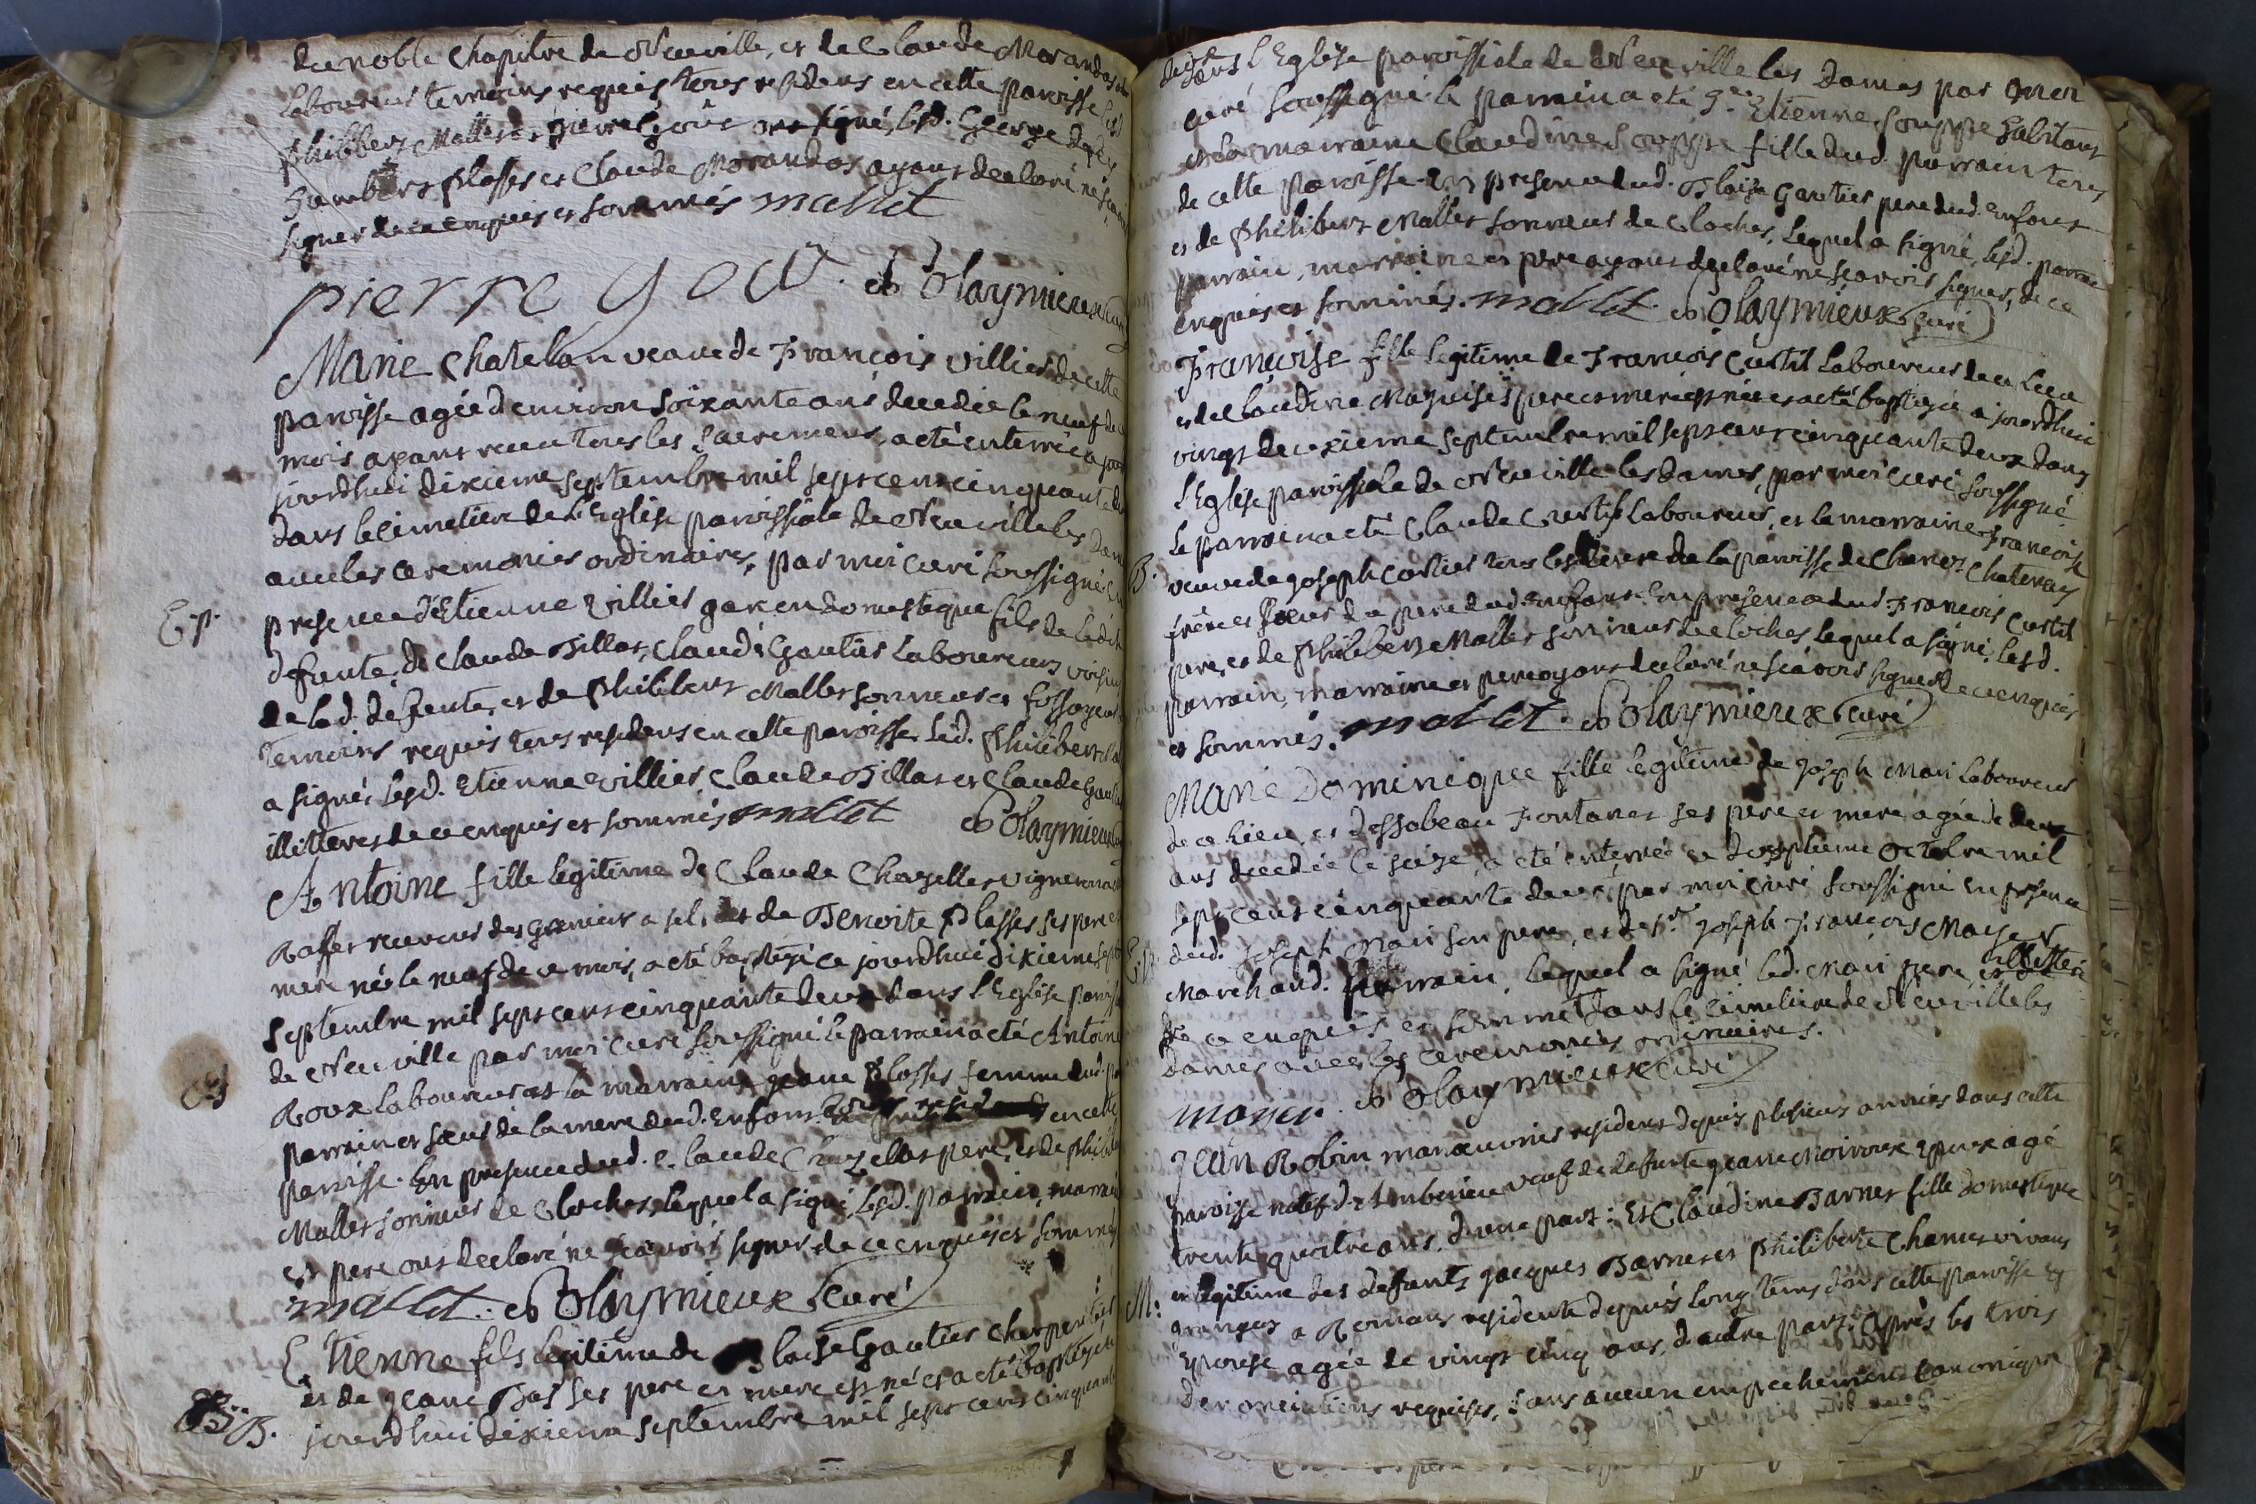 du noble Chapitre de Neuville, et de Claude Morandas
laboureur temoins requis tous residens en cette paroisse led
philibert Mallet et pierre Goüe ont signé, lesd. George
humbert plasses et Claude Morandas ayant declaré ne sçavoir
signer de ce enquis et sommés mallet
pierre goü. Olaymieux curé
Marie Chatelan veuve de François Villier de cette
paroisse agée d'environ soixante ans decedée le neuf de ce
mois ayant receu tous les Sacremens, a été enterrée
jourdhui dixieme septembre mil sept cent cinquante
dans le cimetiere de l'Eglise paroissiale de Neuville les
avec les ceremonies ordinaires, par moi curé soussigné en
E.p.
presence d'Etienne Villier garcon domestique fils de ladite
defunte, de Claude Billas, Claude Gautier laboureurs voisins
de lad. defunte, et de philibert Mallet sonneur et fossoyeur
temoins requis tous residens en cette paroisse, led. philibert
a signé, lesd. Etienne Villier, Claude Billas et Claude
illitterés de ce enquis et sommés mallet Olaymieux
Antoine fille legitime de Claude Chazelles vigneron
receveur des greniers a sel, et de Benoite plasses ses pere et
mere née le neuf de ce mois, a été baptizé ce jourdhui dixieme
septembre mil sept cent cinquante deux dans l'Eglise
de Neuville par moi curé soussigné le parrain a été Antoine
Roux laboureur et la marraine jeane plasses femme dud.
parrain et soeur de la mere dud. enfant en cette
paroisse. En presence dud. Claude Chazelles pere, et de
Mallet sonneur de Cloches, lequel a signé, lesd. parrain, marraine
et pere ont declaré ne sçavoir signer de ce enquis et sommés
mallet. Olaymieux curé
Etienne fils legitime de Blaise Gautier charpentier
et de jeane Bas ses pere et mere est né et a été baptizé
B.
jourdhui dixieme septembre mil sept cent cinquante
deux dans l'Eglise paroissiale de Neuville les Dames par moi
curé soussigné le parrain a été Etienne Souppe habitant
et la marraine Claudine Souppe fille dud. parrain tous
de cette paroisse en presence dud. Blaize Gautier pere dud. enfant
et de philibert Mallet sonneur de Cloches, lequel a signé, lesd. parrain
parrain, marraine et pere ayant declaré ne sçavoir signer, de ce
enquis et sommés. mallet. Olaymieux curé
Françoise fille legitime de François Curtil laboureur de ce lieu
et de Claudine pere et mere est née et a été baptizée ajourdhui
vingt deuxieme septembre mil sept cent cinquante deux dans
l'Eglise paroissiale de Neuville les dames, par moi curé soussigné
le parrain a été Claude Curtil laboureur, et la marraine Françoise
B.
veuve de joseph tous les deux de la paroisse de Chanoz Chatenay
frere et soeur du pere dud. enfant. En presence dud. François Curtil
pere, et de philibert Mallet sonneur de Cloches lequel a signé, lesd.
parrain, marraine et pere ayant declaré ne sçavoir signer de ce enquis
et sommés. mallet. Olaymieux curé
Marie Dominique fille legitime de joseph Mari laboureur
de ce lieu, et d'Issabeau Fontanet ses pere et mere agée de deux
ans decedée le seize a été enterrée ce dixseptieme Octobre mil
sept cent cinquante deux, par moi curé soussigné en presence
dud. joseph Mari son pere, et de Sr. joseph François Moyer
Marchand. parrain, lequel a signé led. Mari pere illitteré
de ce enquis et sommé dans le cimetiere de Neuville les
Dames avec les ceremonies ordinaires.
moyer. Olaymieux curé
jean Robin manoeuvrier residant depuis plusieurs années dans cette
paroisse natif d'Amberieu veuf de defunte jeane Moiroux Epoux agé
trente quatre ans, d'une part: Et Claudine Barnet fille domestique
et legitime des defunts jacques Barnet et philiberte Chanus vivans
M:
grangers a Romans residente depuis long tems dans cette paroisse
Epouse agée de vingt cinq ans, d'autre part. Après les trois
denonciations requises, sans aucun empechement canonique